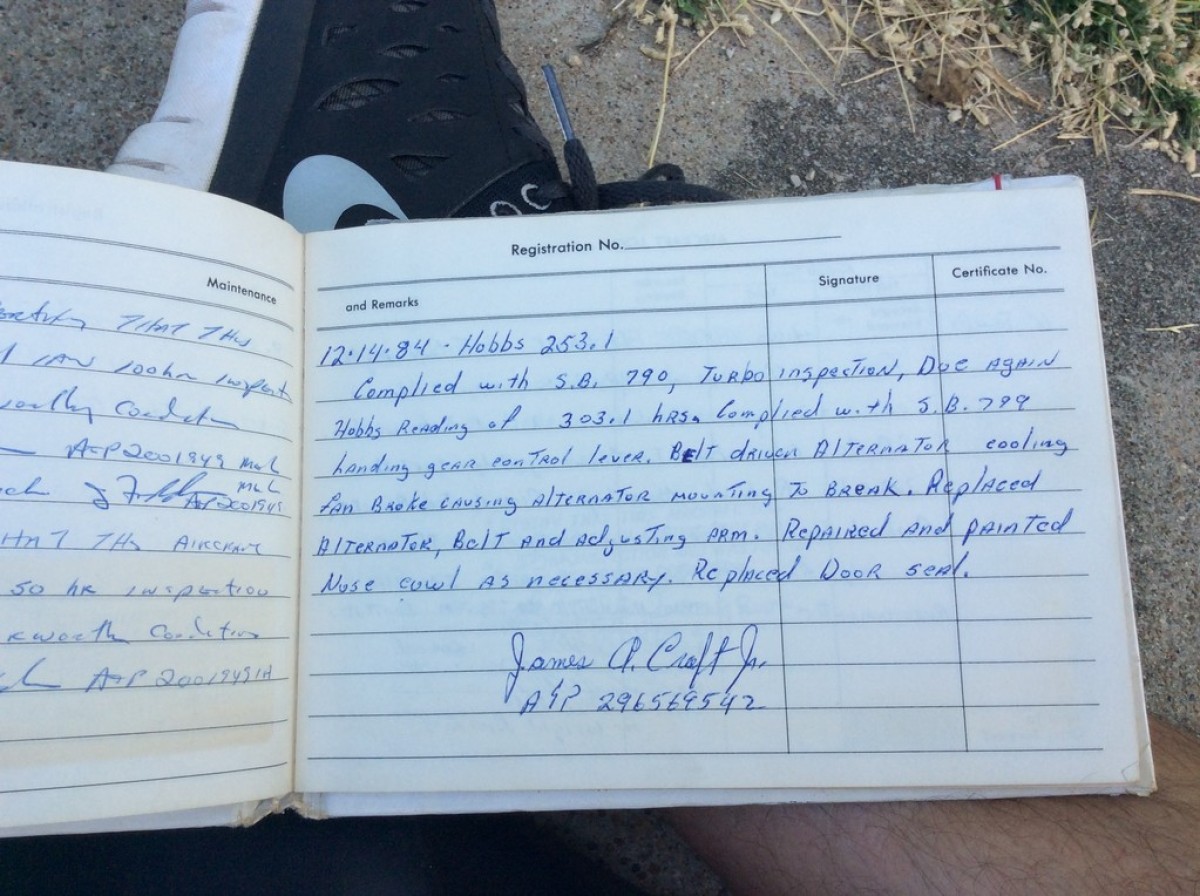 Maintenance
THAT THIS
100hr inspect
worthy Condition
A+P 2001949
A+P 2001949
THAT THIS AIRCRAFT
50 hr inspection
worthy Condition
A+P 2001949
Registration No.
and Remarks
Signature
Certificate No.
12.14.84 - Hobbs 253.1
Complied with S.B. 790, Turbo inspection, Due again
Hobbs Reading of 303.1 hrs. Complied with S.B. 799
Landing gear control lever. Belt driven Alternator cooling
fan Broke causing Alternator mounting to Break. Replaced
Alternator, Belt and adjusting arm. Repaired and painted
Nose cowl as necessary. Replaced Door seal.
James A. Craft Jr.
A&P 296569542